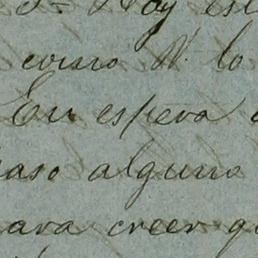 Sr. Hoy est
como V. lo
En espera
aso alguno
ara creer q